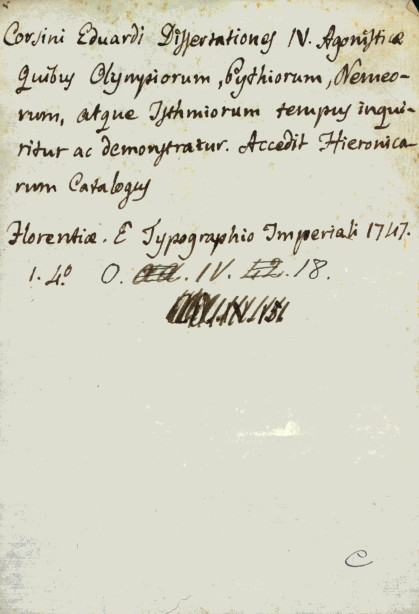 Corsini Eduardi Dissertationes IV. Agonisticæ
Quibus Olympiorum, Pythiorum, Nemeo-
rum, atque Isthmiorum tempus inqui-
ritur ac demonstratur. Accedit Hieronica-
rum Catalogus
Florentiæ. E Typographio Imperiali 1747.
1. 4.º O. . IV. . 18.
C